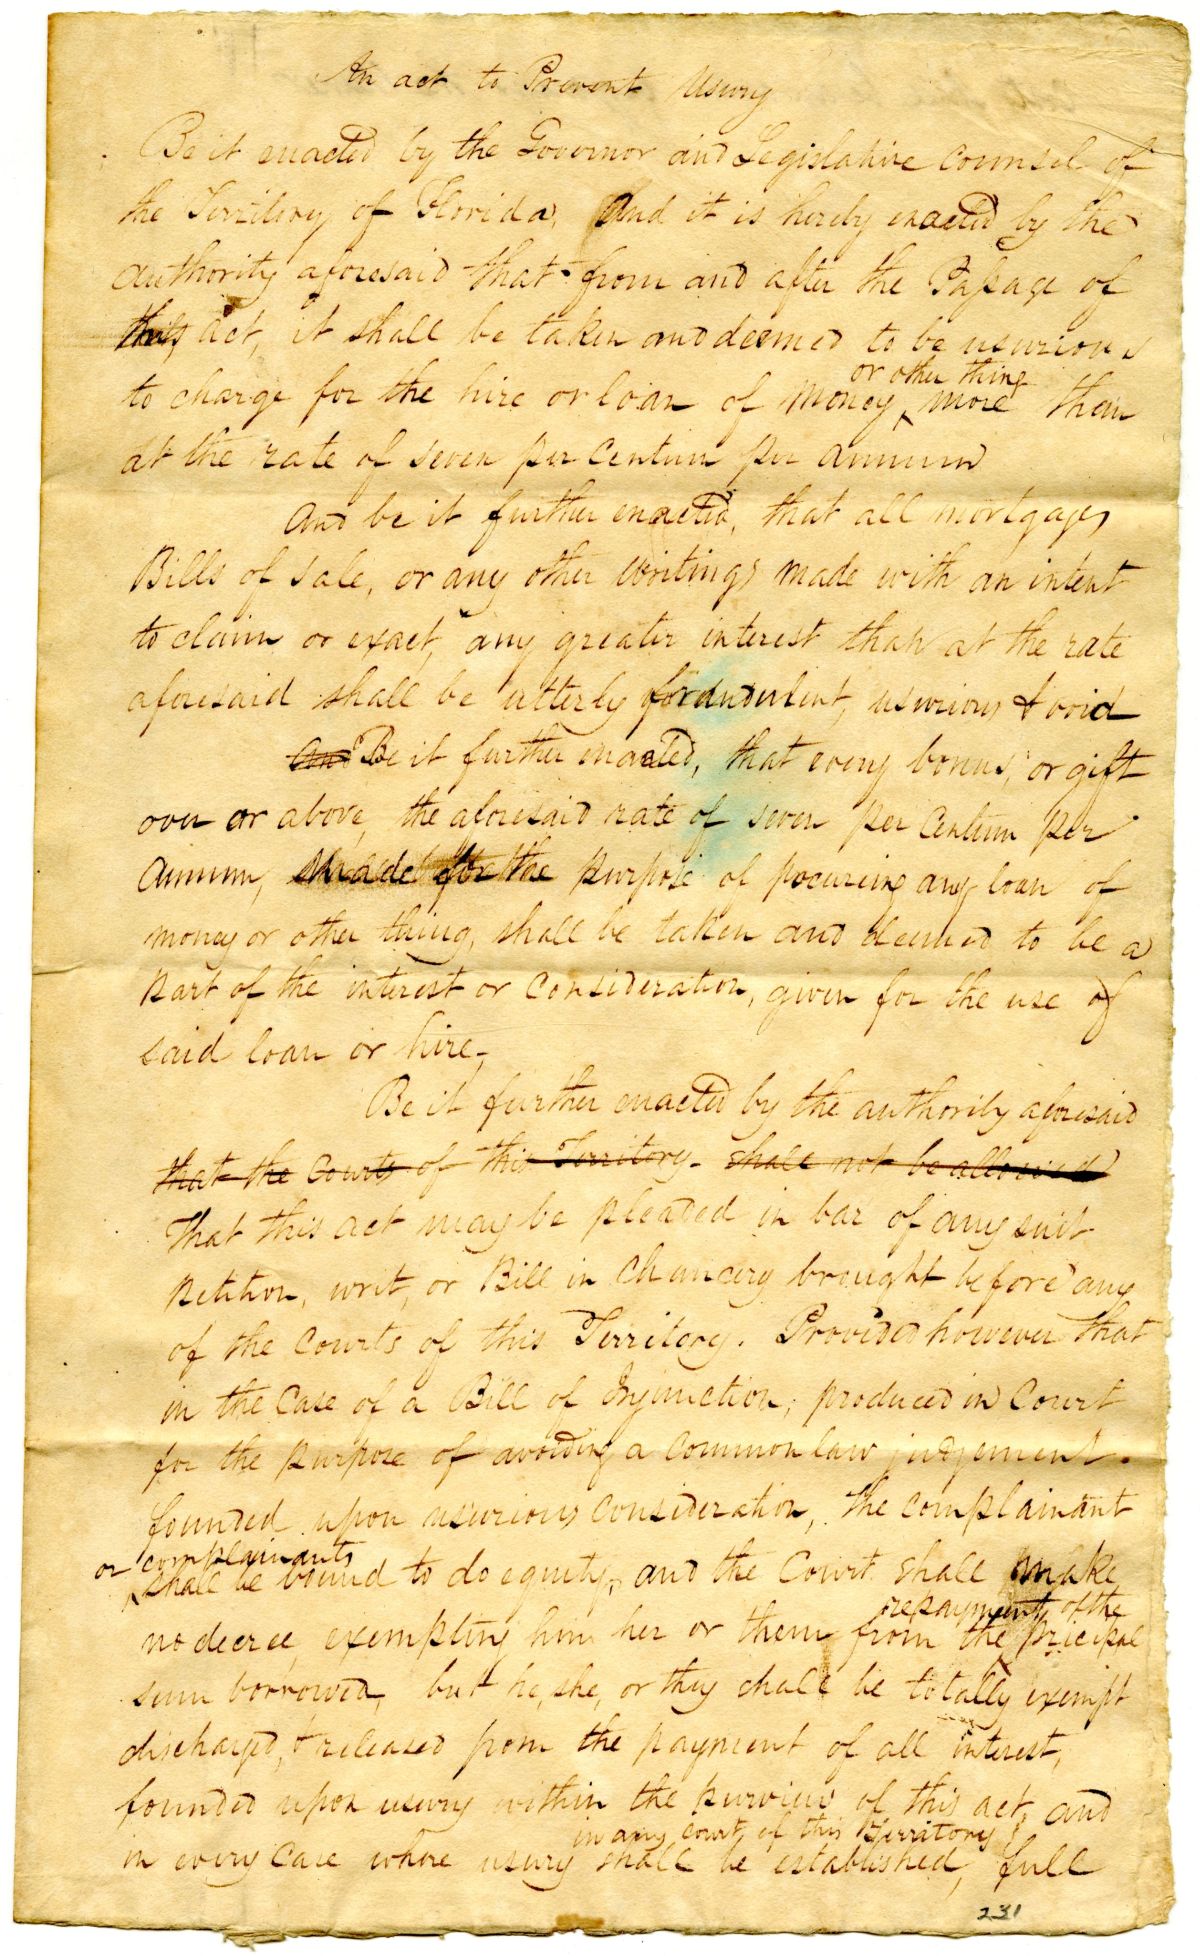 An act to Prevent Usury
Be it enacted by the Governor and Legislative counsel of
the Territory of Florida, And it is hereby enacted by the
authority aforesaid that from and after the Passage of
this act, it shall be taken and deemed to be usurious
or other thing
to charge for the hire or loan of money, more than
at the rate of seven per centum per annum
And be it further enacted, that all mortgages
Bills of sale, or any other writings made with an intent
to claim or exact, any greater interest than at the rate
aforesaid shall be utterly fordudulent, usurious & void
And Be it further enacted, that every bonus, or gift
over or above, the aforesaid rate of seven per centum per
annum, made for the purpose of pocuring any loan of
money or other thing, shall be taken and deemed to be a
part of the interest or consideration, given for the use of
said loan or hire,
Be it further enacted by the authority aforesaid
that the Courts of this Territory - shall not be allowed
That this act may be pleaded in bar of any suit
petition, writ, or Bill in Chancery brought before any
of the courts of this Territory. Provided however that
in the case of a Bill of Injunction, produced in Court
for the purpose of avoiding a common law judgement.
founded upon usurious consideration, the complainant
or complainants
shall be bound to do equity, and the Court shall make
repayment of the
no decree, exempting him her or them from the pricipal
sum borrowed, but he, she, or they shall be totally exempt
discharged, & released from the payment of all interest,
founded upon usury within the purview of this act, and
in any court of this Territory
in every case where usury shall be established, full
231